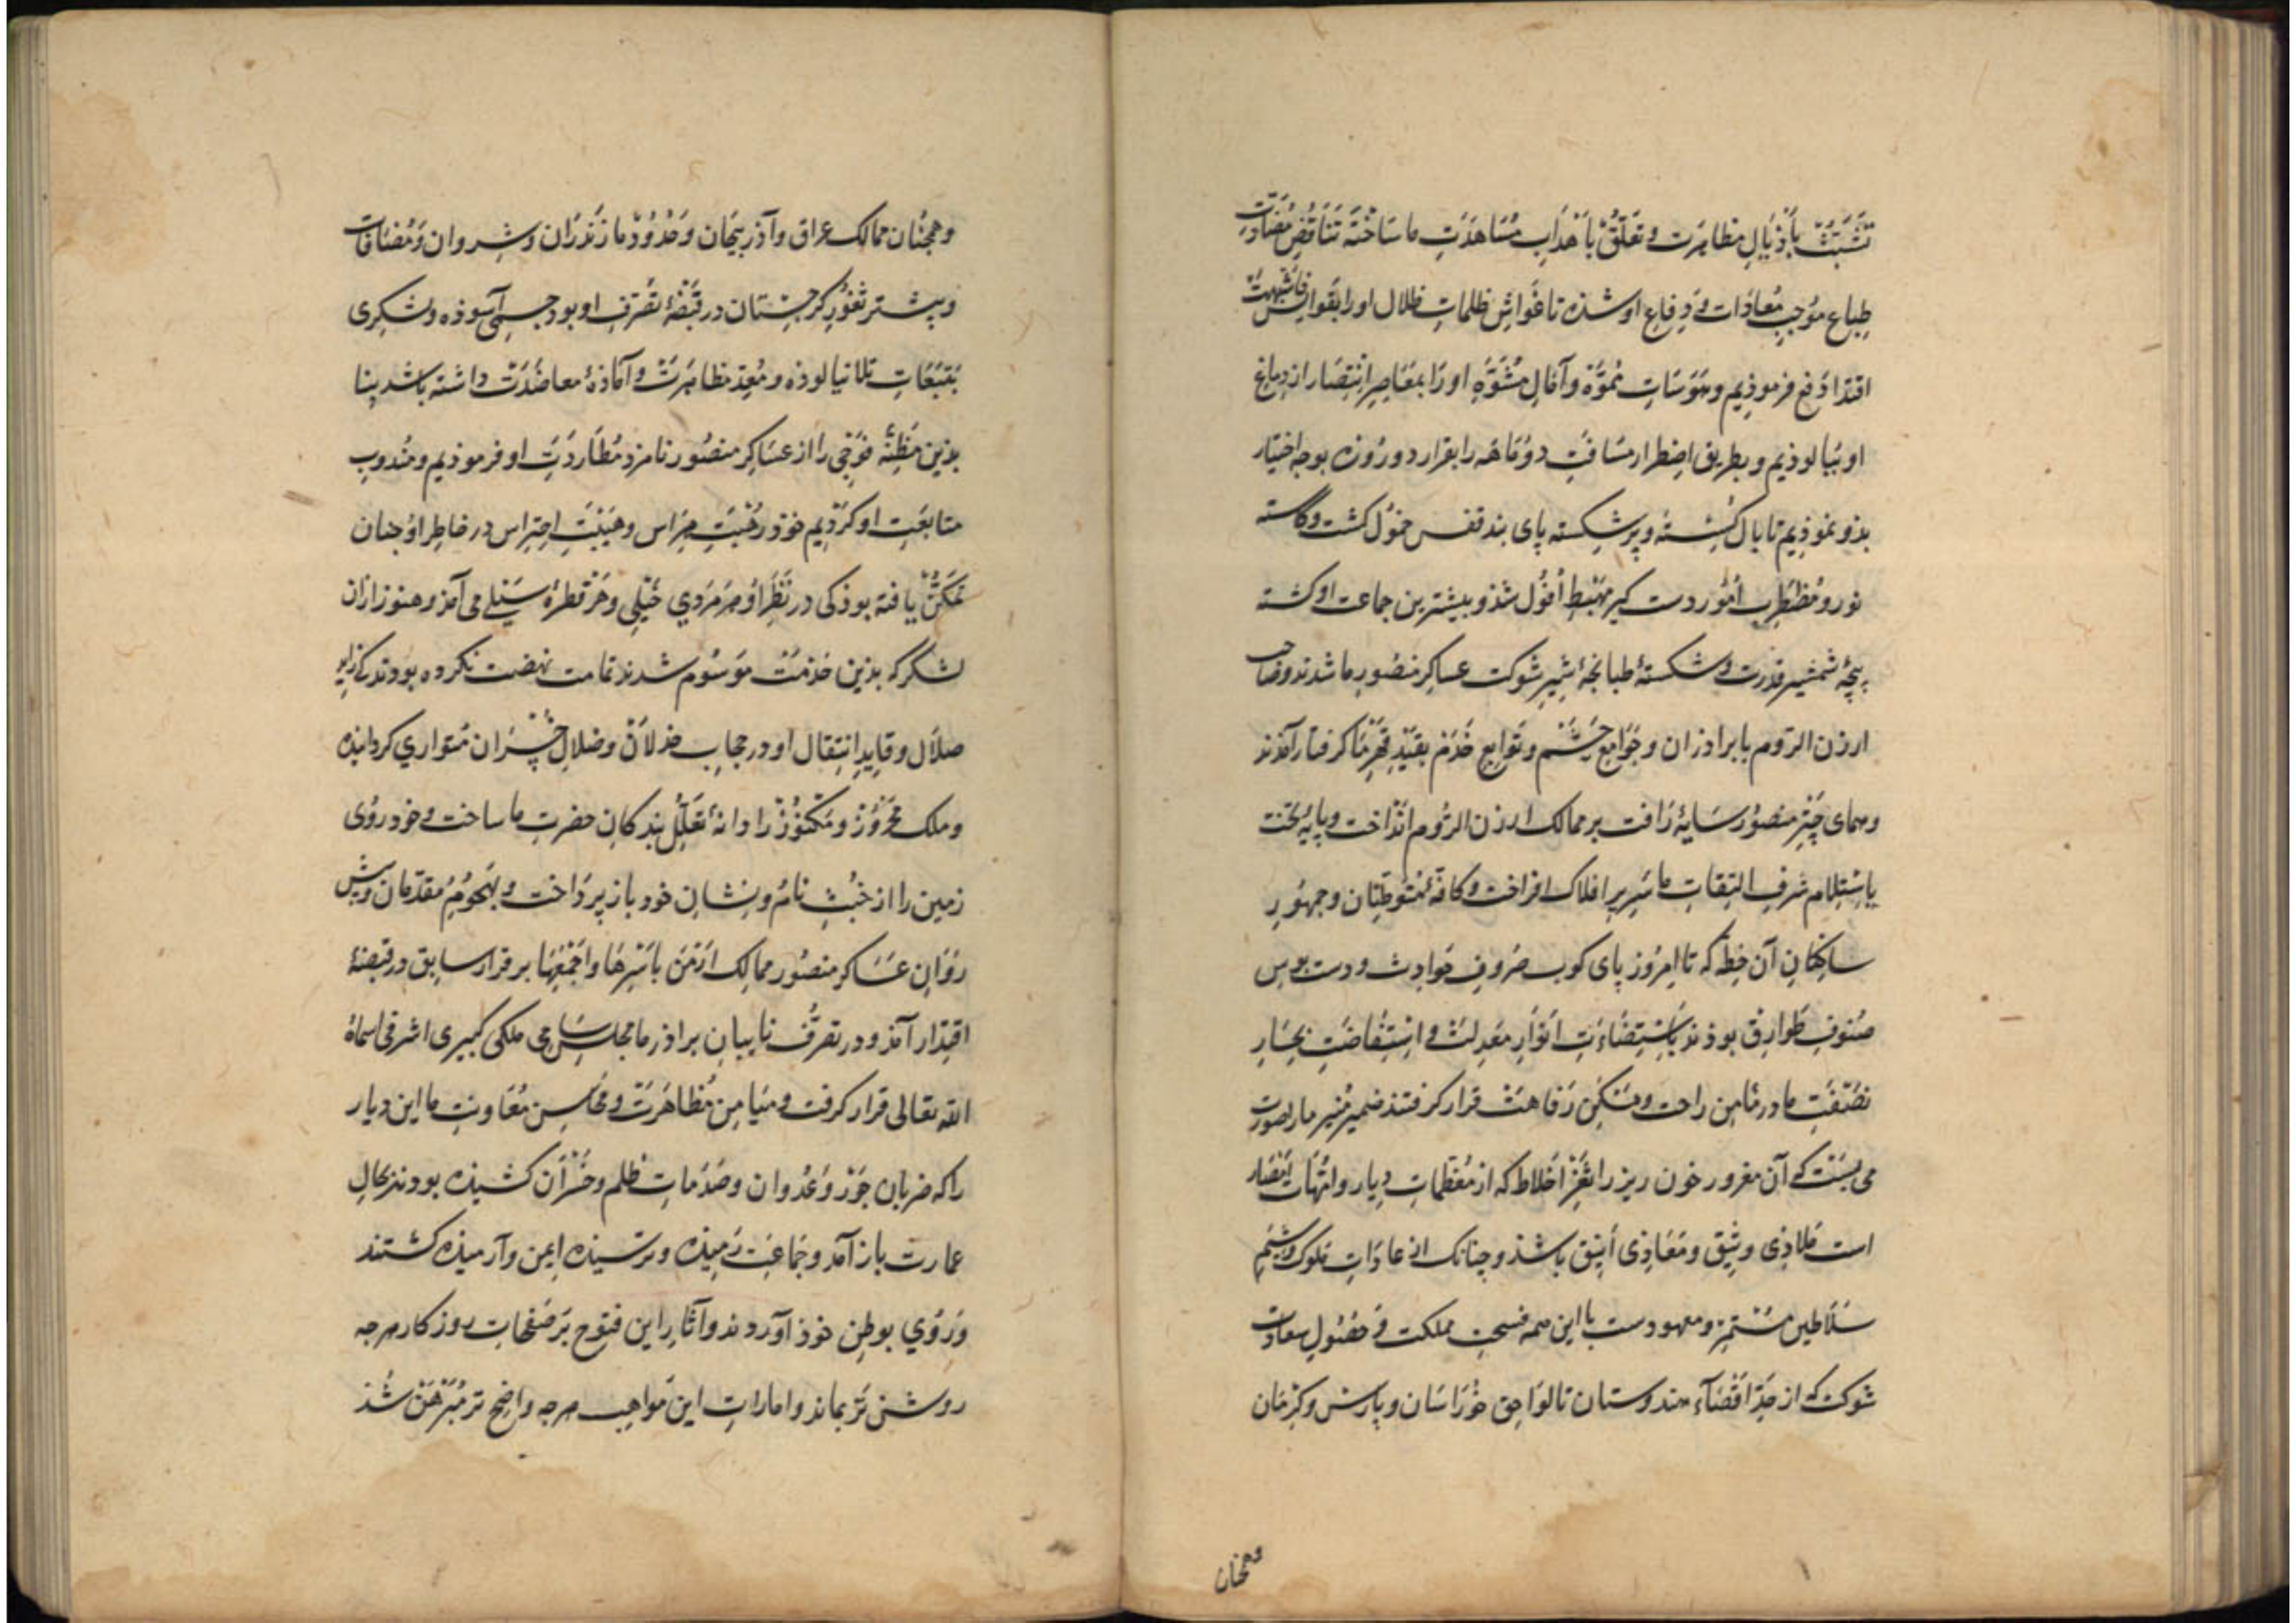 تَشَبُّث بأَذْیَالِ مظاهرَت و تعَلّقُ بأهدَابِ مُسَاهدَتِ ما سَاختَه تَنَاقُضِ مُضَادَتِ
طِباع مؤجبِ مُعادَات و دِفاعِ او شذه تا غَواشِ ظلماتِ ظلال او را بقَوابِسِ
اقتدا دَفع فرموذیم و هوَسَاتِ مُموّه و آمَالِ مُشَوَّهِ او رَا بمقَاصِرِ انتِصَار از دِماغِ
او بپالوذیم و بطریق اضطرار مسَافتِ دو مَاهَه را بقرار دو رُوزه بوجه اختیار
بذو نموذیم تا بال کسَسته و پر شکِسته پای بند قفس خموُل کشت و کاسته
نور و مُضْطَرِب اُمُور دست کیر مهَبْطِ اُفوُل شذ و بیشترین جماعت او کشته
پنجهٔ شمشیر قدرت و شکستهٔ طبانجهٔ شیر شوکت عساکر منصُورِ ما شدند و صاحب
ارزن الرّوم با براذران و جَوَامِع حَشَم و توَابِع خَدَم بقیَدِ قَهْرِ مَا کرفتار آمذند
و همای چَترِ منصُور سَایهٔ رَافت بر ممالک ارزن الرّوم انداخت و پایهٔ تخت
باسْتِلام شرفِ التِفاتِ ما سَرِیرِ افلاک افراخت و کافّهٔ مُتوَطّنان و جمهُورِ
سَاکِنانِ آن خطه که تا امرُوز پای کوب صُروفِ حَوادِث و دست بوس
صُنوفِ طَوارِق بوذند باسْتِضَاءَتِ انوَارِ معَدِلت و استِفاضَتِ بِحَارِ
نصَفتِ ما در مَامِن راحت و مَسکَنِ رَفاهت قرار کرفتند ضمیر مُنیر ما را صورت
می بست کی آن مغرور خون ریز را ثغرْ اخلاط که از مُعَظماتِ دِیار و امّهاتِ امْصَار
است مَلاذِی وثِیق و مَعَاذِی اَنِیق باشذ و چنانک از عادَاتِ مُلوک و شِیَمِ
سَلاطین مسُتمرّ و معهودست با این همه فسحتِ مملکت و حصُولِ سعادت
شوکت که از حَدِّ اقصَاءِ هندوستان تا لوَاحِق خُرَاسَان و پارس و کِرْمان
وهمجنان
وهمجنان ممالک عراق و آذربیجان و حَدُوُدِ مازنَدرَان و شروان و مُضافات
و بیشتر ثغوُر کرجستان در قبَضَهٔ تصَرّف او بود جسمی آسوذه و لشکری
بذین مَظِنّه فوجی را از عسَاکِر منصُور نامزد مُطارَدَتِ او فرموذیم و مندوب
متابعَتِ او کردیم خوذ رهبَتِ هِرَاس و هیَبَتِ احتِراس در خاطر اوُ جنان
تمَکنُّ یافته بوذ کی در نَظَرِ اوُ هرَ مَردِی خَیْلِی و هَر قطرهٔ سَیْلی می آمذ و هنوز از آن
لشکر که بذین خذمَت موسُوم شدند تمامت نهضت نکرده بودند کی
ضلال و قایِدِ انتِقال او در حجابِ خذلان و ضلالِ خسْران مُتوارِی کردانیده
و ملک محرُوز و مکنُوز را دانهٔ تعَلّلِ بندکان حضرتِ ما ساخت و خود روُی
زمین را از خبُث نامُ و نِشانِ خود باز پردَاخت و بهجُومِ مُقدّمان و پیش
رَوَانِ عسَاکر منصُور ممالِک ارَمَن باَسْرِهَا و اجَمعِهَا بر قرار سابِق در قبَضهٔ
اقتِدار آمذ و در تصرّف نایبانِ براذر ما مجلسِ سَامی ملکی کبیری اشرفی اسماهُ
الله تعَالی قرار کرفت و میَامِن مُظاهَرَت و محاسِنِ مُعَاونتِ ما این دیار
را که ضربانِ جَوْر و عُدوان و صَدَمَاتِ ظلم و خُسْرَان کشیذه بودند بحالِ
عمارت باز آمد و جَماعَتِ رَمیِذه و ترسیذه ایمن و آرمیذه کشتند
و رُوُی بوطنِ خوذ آوردند و آثارِ این فتوح بَر صَفَحات روز کار هرجه
روشن ترَ بماند و اماراتِ این مَواهِب هرجه واضح تر مُبَرهَن شُذ